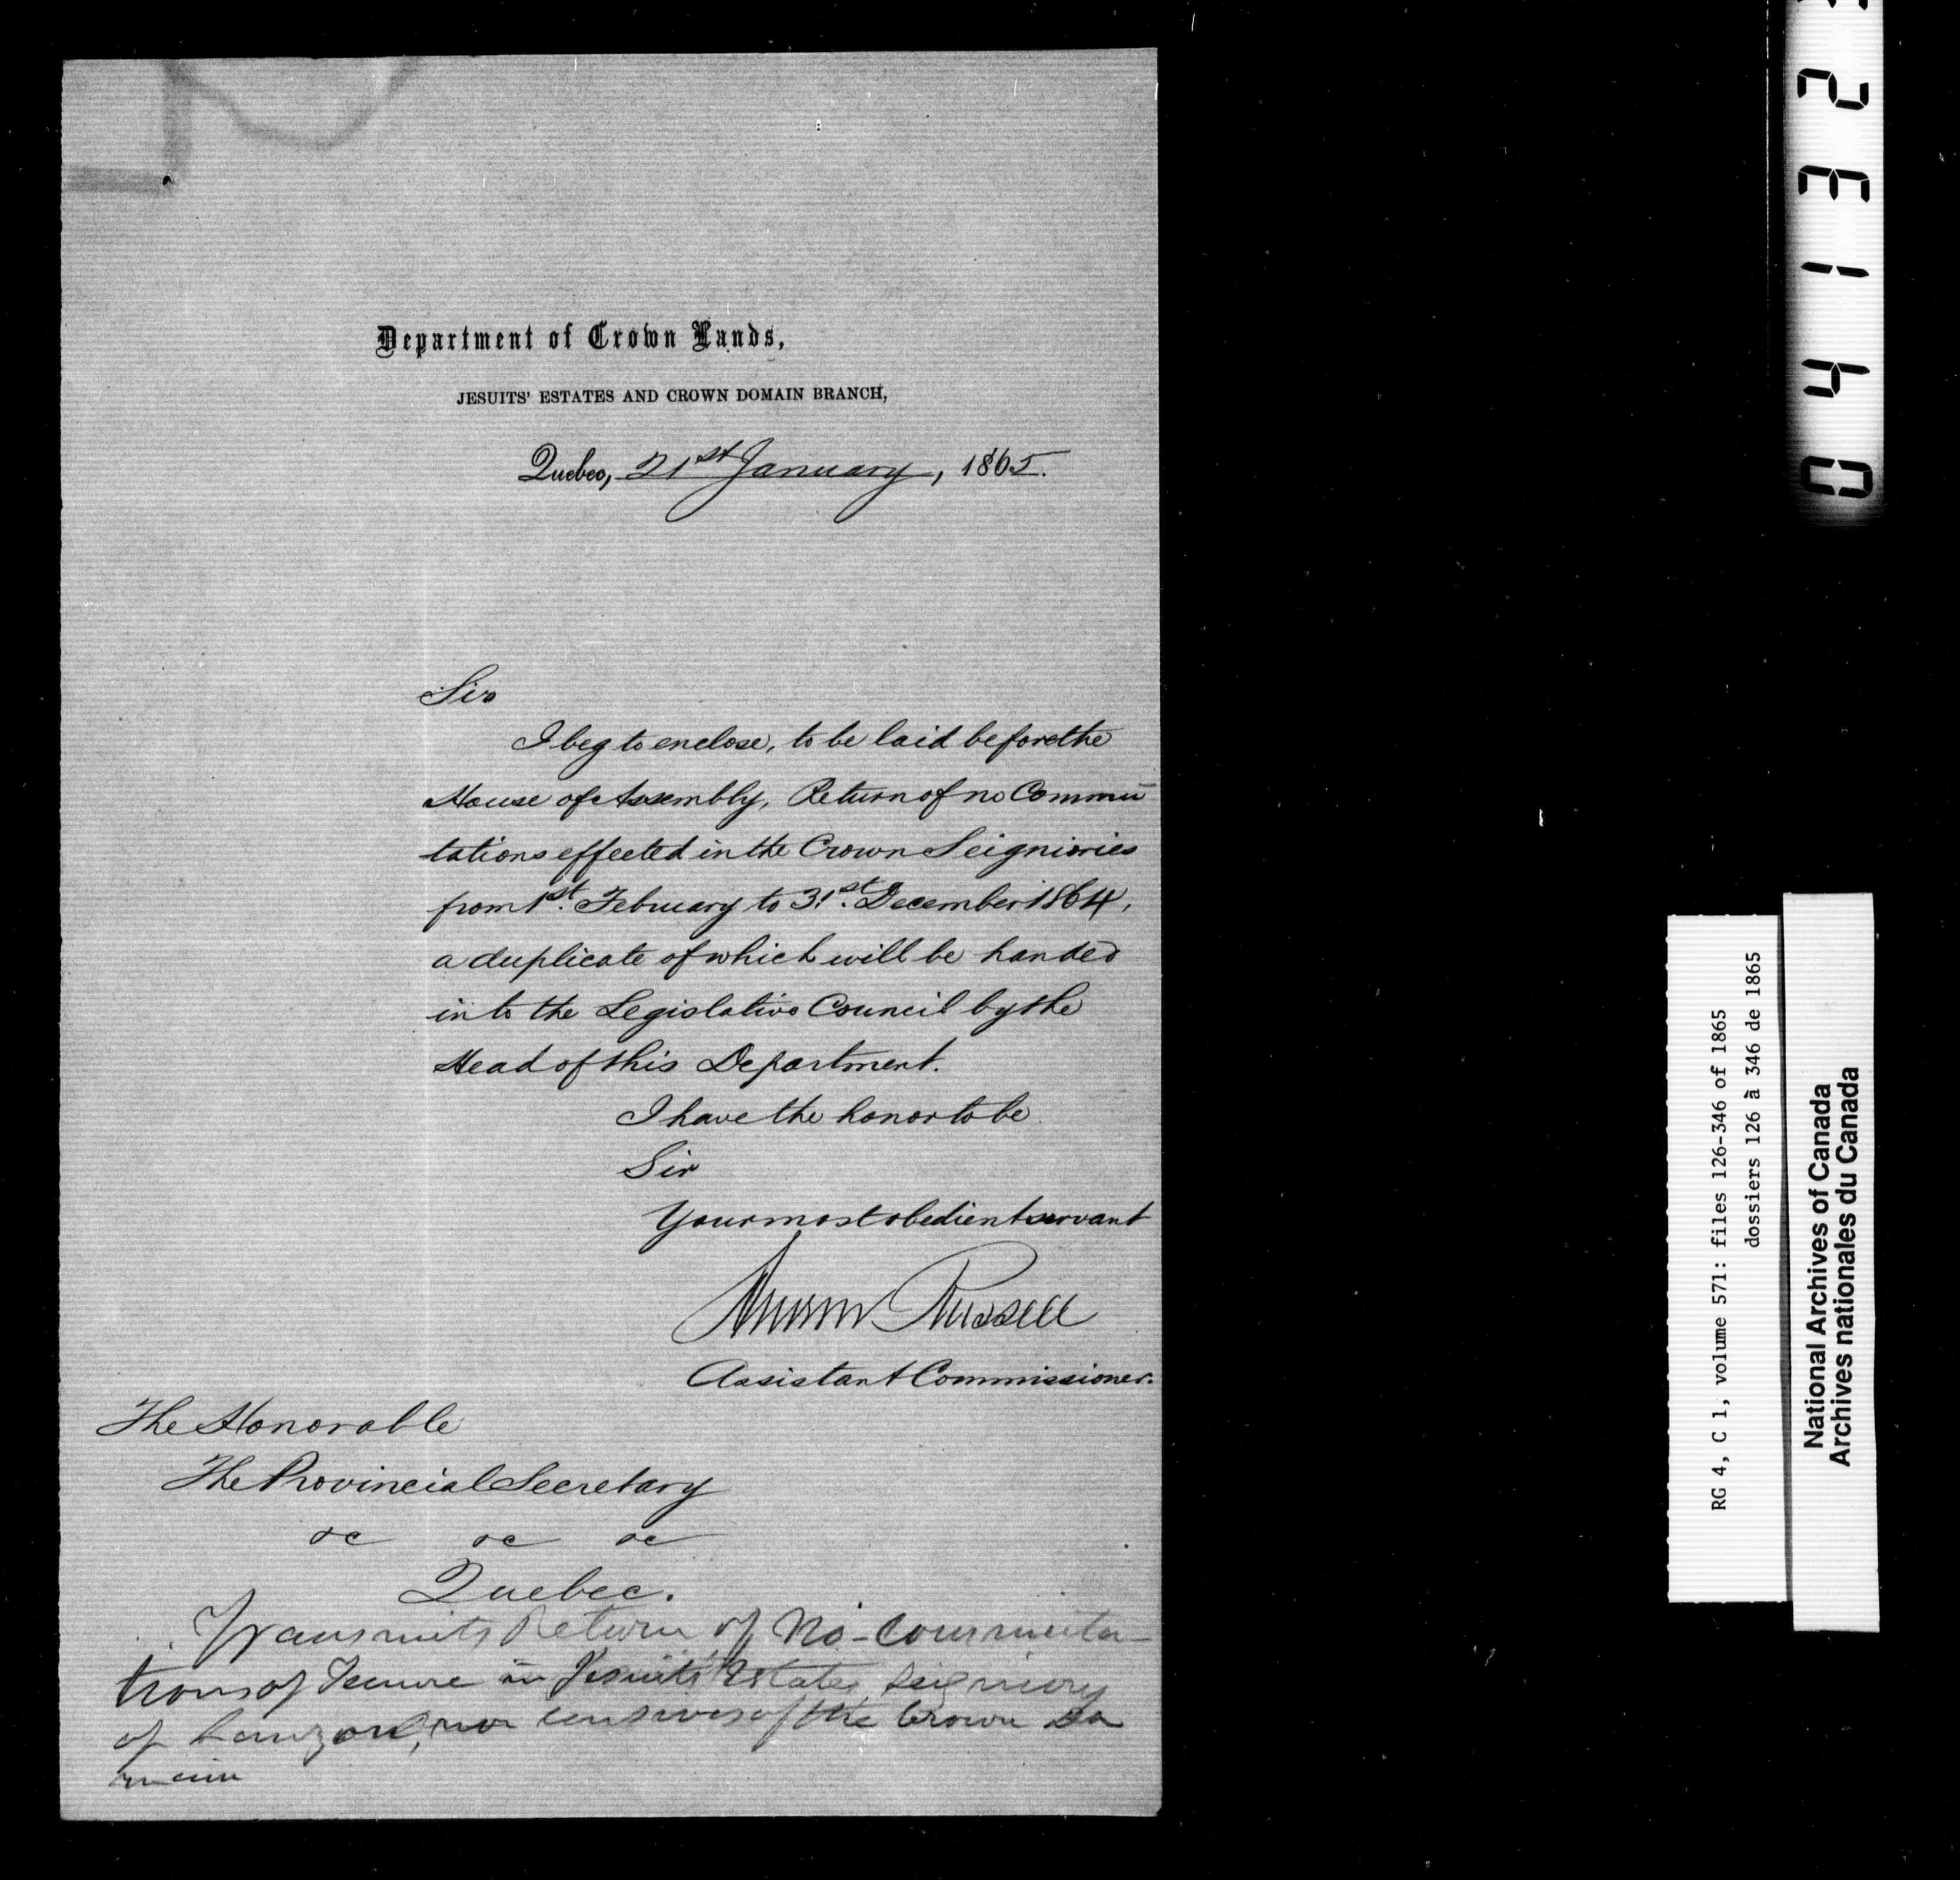 Department of Crown Lands,
JESUITS' ESTATES AND CROWN DOMAIN BRANCH,
Quebec, 21st January, 1865.
Sir
I beg to enclose, to be laid before the
House of Assembly, Return of no Commu
tations effected in the Crown Seigniories
from 1st. February to 31st. December 1864,
a duplicate of which will be handed
in to the Legislative Council by the
Head of this Department.
I have the honor to be
Sir
Your most obedient servant
Andrew Russell
Assistant Commissioner.
The Honorable
The Provincial Secretary
&c &c &c
Quebec.
Transmits Return of No-Commuta-
tions of Tenure in Jesuits Estates, Seigniory
of Lauzon, nor censives of the Crown Do
main
RG 4, C 1, volume 571: files 126-346 of 1865
dossiers 126 à 346 de 1865
National Archives of Canada
Archives nationales du Canada